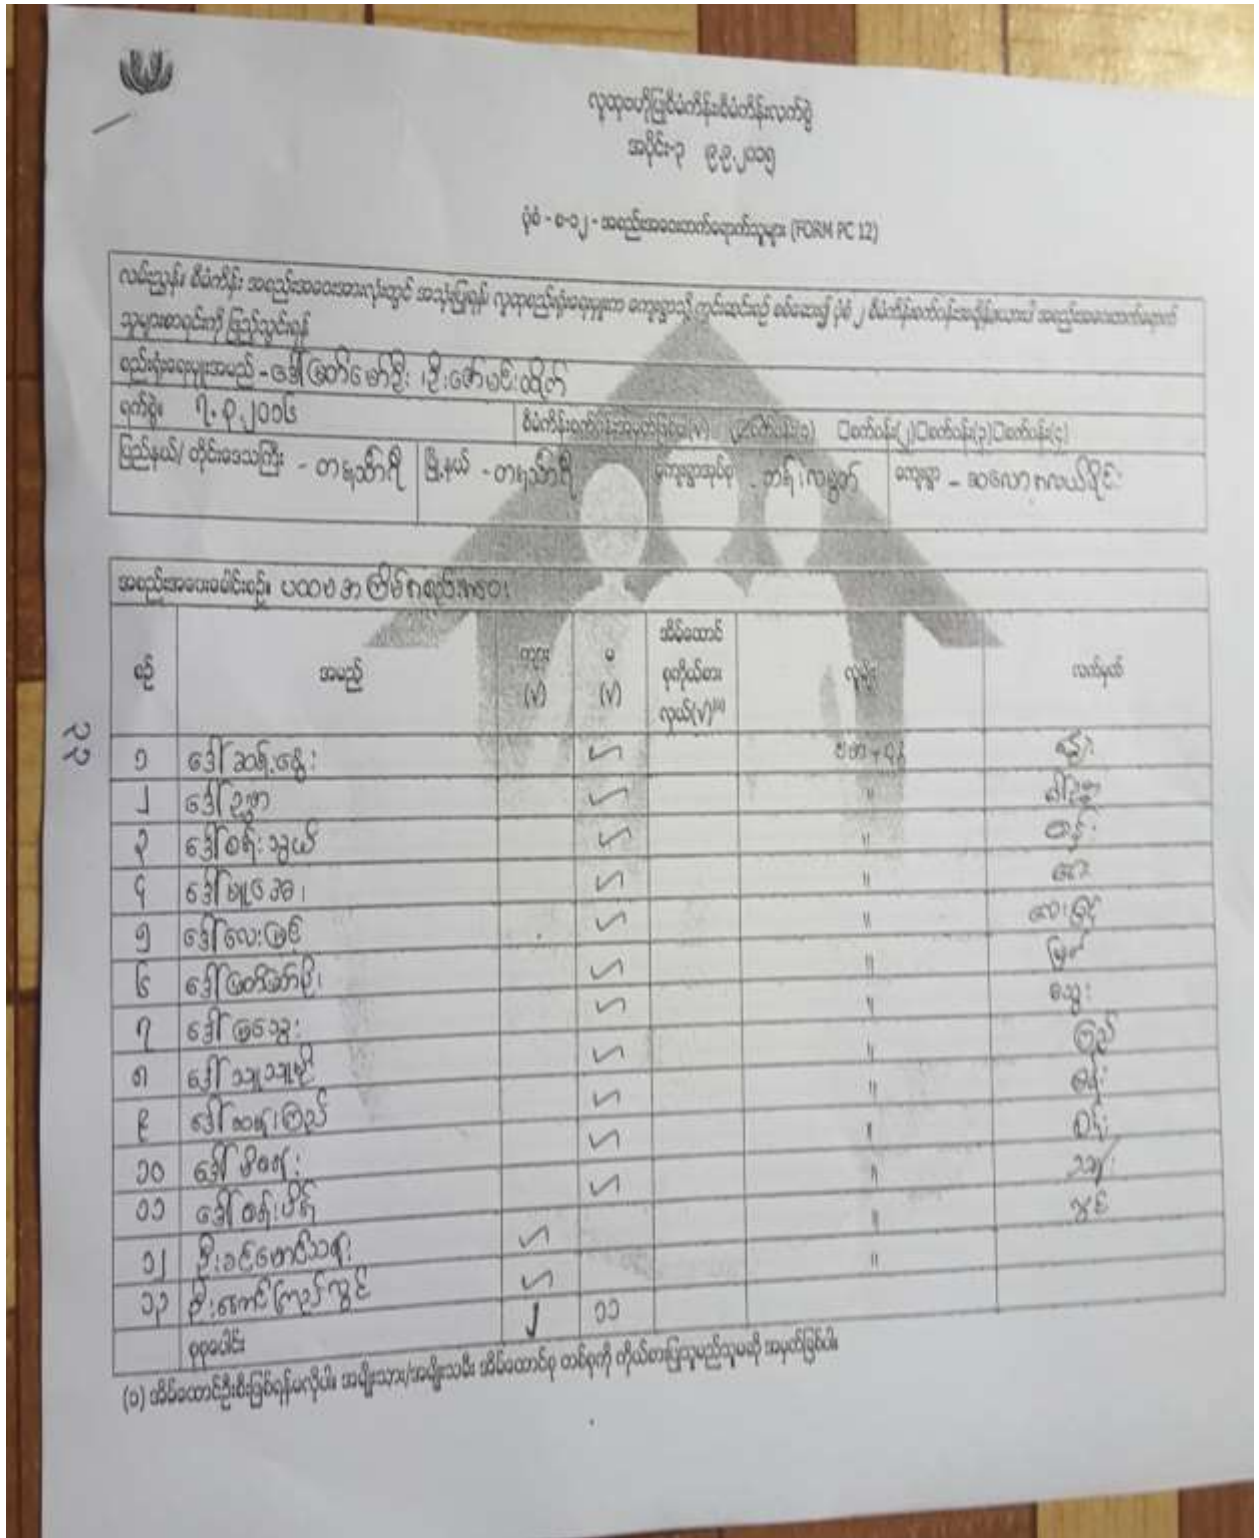 လူထုဗဟိုပြုစီမံကိန်းစီမံကိန်းလက်စွဲ
အပိုင်း-၃ ၉.၉.၂၀၁၅
ပုံစံ - စ-၁၂ - အစည်းအဝေးတက်ရောက်သူများ (FORM PC 12)
လမ်းညွှန်။ စီမံကိန်း အစည်းအဝေးအားလုံးတွင် အသုံးပြုရန်၊ လူထုစည်းရုံးရေးမှူးက ကျေးရွာသို့ ကွင်းဆင်းစဉ် စစ်ဆေး၍ ပုံစံ ၂ စီမံကိန်းစက်ဝန်းအချိန်ဇယားပါ အစည်းအဝေးတက်ရောက်
သူများစာရင်းကို ဖြည့်သွင်းရန်
စည်းရုံးရေးမှူးအမည် - ဒေါ်မြတ်မော်ဦး ၊ဦးဇော်မင်းထိုက်
ရက်စွဲ။ ၇.၃.၂၀၁၆ စီမံကိန်းစက်ဝန်းအမှတ်ခြစ်ပေး(√) ☑စက်ဝန်း(၁) □စက်ဝန်း(၂)□စက်ဝန်း(၃)□စက်ဝန်း(၄)
ပြည်နယ်/ တိုင်းဒေသကြီး - တနင်္သာရီ မြို့နယ် - တနင်္သာရီ ကျေးရွာအုပ်စု - ကျေးရွာ -
အစည်းအဝေးခေါင်းစဉ်။ ပထမအကြိမ်အစည်းအဝေး
စဉ် အမည် ကျား (√) မ (√) အိမ်ထောင်စုကိုယ်စားလှယ်(√)⁽¹⁾ လူမျိုး လက်မှတ်
၁ ဒေါ်ဆန်းနွေး √
၂ ဒေါ်ဥဏ္ဏာ √ "
၃ ဒေါ်စန်းသွယ် √ "
၄ ဒေါ်မူအေး √ "
၅ ဒေါ်လေးမြင့် √ " လေးမြင့်
၆ ဒေါ်မြတ်မော်ဦး √ " မြတ်
၇ ဒေါ်မြသွေး √ " သွေး
၈ ဒေါ်သူသူမို √ "
၉ ဒေါ်ဆန်းကြည် √ " ကြည်
၁၀ ဒေါ်မိစန်း √ " စန်း
၁၁ ဒေါ်စန်းပိန် √ " စန်း
၁၂ ဦးခင်မောင်သန်း √ "
၁၃ ဦးအောင်ကြည်လွင် √ " လွင်
စုစုပေါင်း ၂ ၁၁
(၁) အိမ်ထောင်ဦးစီးဖြစ်ရန်မလိုပါ။ အမျိုးသား/အမျိုးသမီး အိမ်ထောင်စု တစ်စုကို ကိုယ်စားပြုသူမည်သူမဆို အမှတ်ခြစ်ပါ။
၂၃